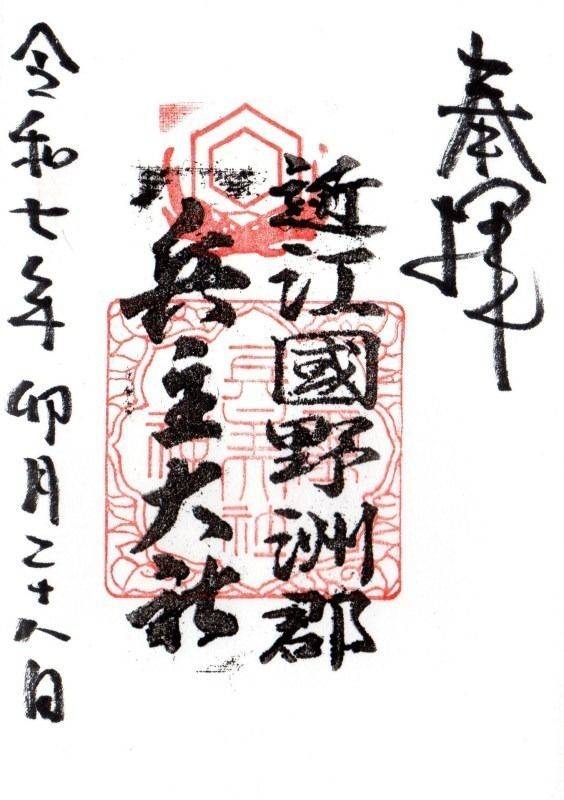 奉拝
近江國野洲郡
兵主大社
令和七年 卯月二十八日